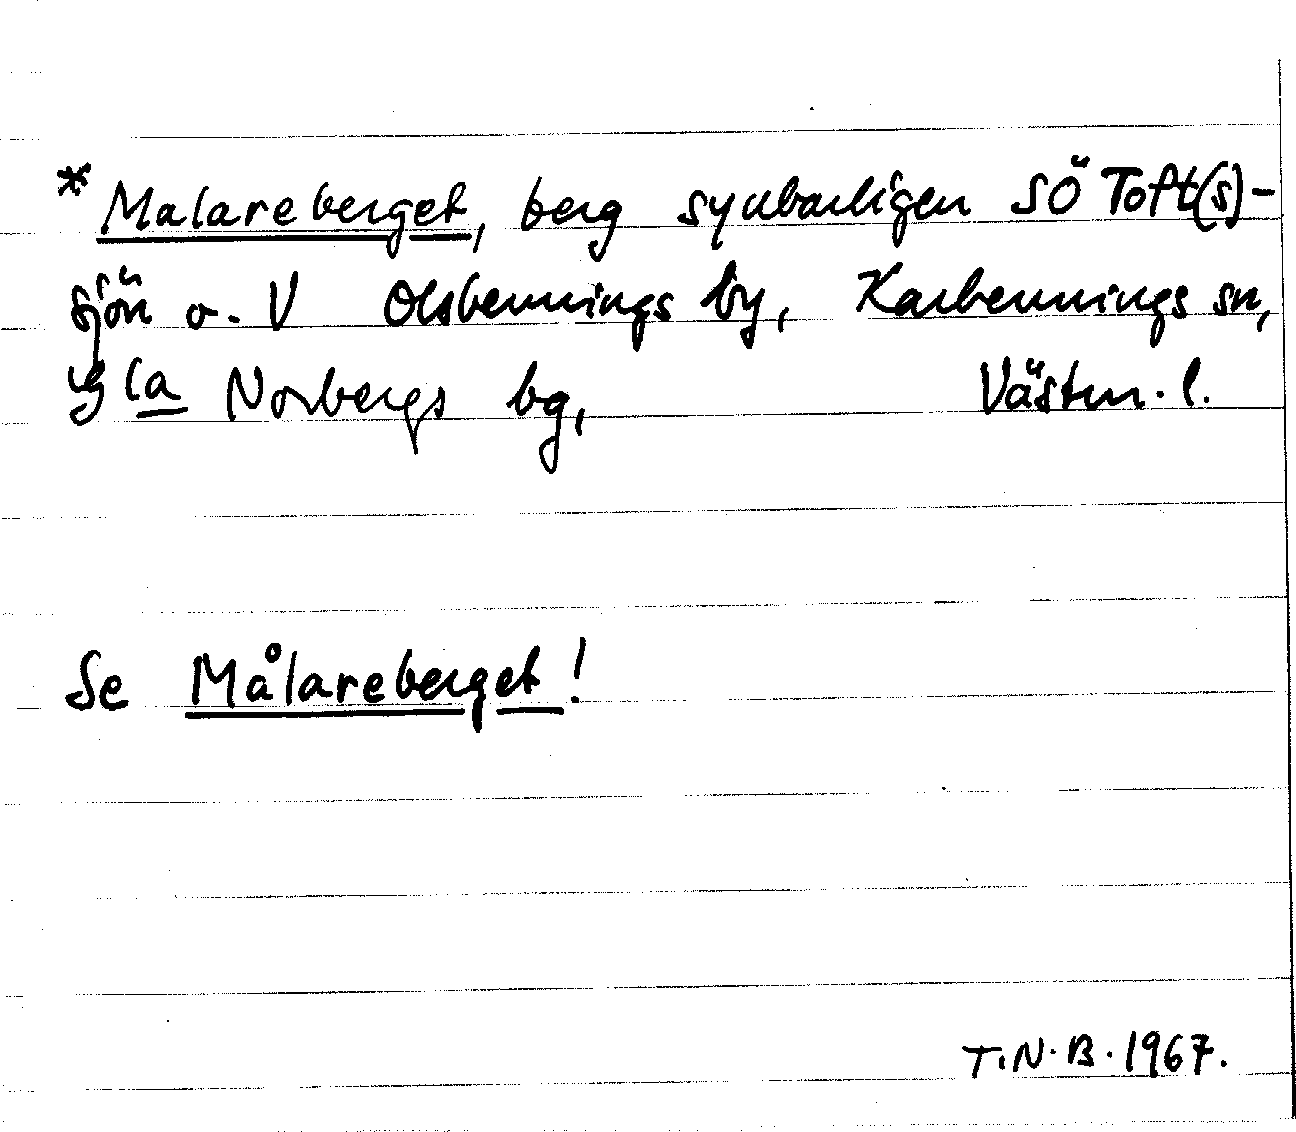 *Malareberget, berg synbarligen SÖ Toft(s)-
sjön o. V Olsbennings by, Karbennings sn,
G la Norbergs bg, Västm. l.
Se Målareberget!
T.N.B. 1967.